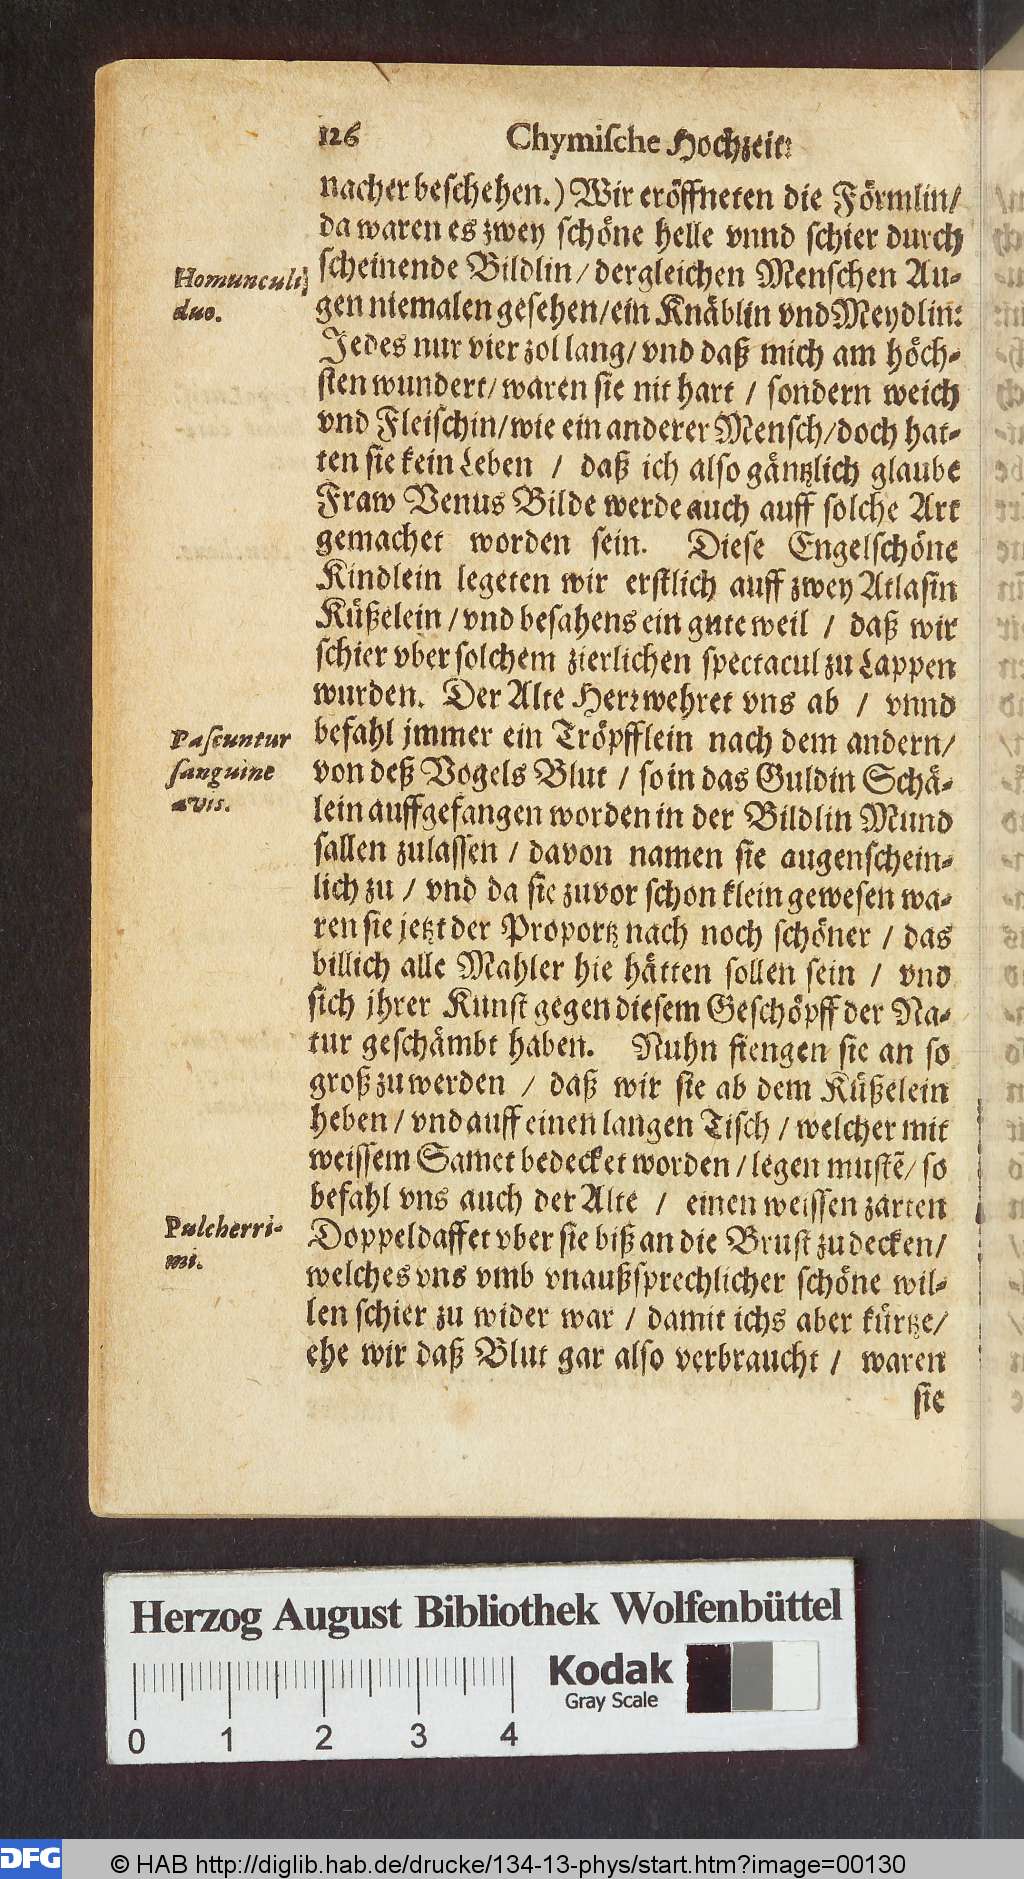 126 Chymiſche Hochzeit:
nacher beſchehen.) Wir eröffneten die Förmlin/
da waren es zwey ſchöne helle vnnd ſchier durch
ſcheinende Bildlin/ dergleichen Menſchen Au-
gen niemalen geſehen/ ein Knäblin vnd Meydlin:
Jedes nur vier zol lang/ vnd daß mich am höch-
ſten wundert/ waren ſie nit hart / ſondern weich
vnd Fleiſchin/ wie ein anderer Menſch/ doch hat-
ten ſie kein Leben / daß ich alſo gäntzlich glaube
Fraw Venus Bilde werde auch auff ſolche Art
gemachet worden ſein. Dieſe Engelſchöne
Kindlein legeten wir erſtlich auff zwey Atlaſin
Küßelein / vnd beſahens ein gute weil / daß wir
ſchier vber ſolchem zierlichen ſpectacul zu Lappen
wurden. Der Alte Herꝛ wehret vns ab / vnnd
befahl jmmer ein Tröpfflein nach dem andern/
von deß Vogels Blut / ſo in das Guldin Schä-
lein auffgefangen worden in der Bildlin Mund
fallen zulaſſen / davon namen ſie augenſchein-
lich zu / vnd da ſie zuvor ſchon klein geweſen wa-
ren ſie jetzt der Proportz nach noch ſchöner / das
billich alle Mahler hie hätten ſollen ſein / vnd
ſich jhrer Kunſt gegen dieſem Geſchöpff der Na-
tur geſchämbt haben. Nuhn fiengen ſie an ſo
groß zu werden / daß wir ſie ab dem Küßelein
heben / vnd auff einen langen Tiſch / welcher mit
weiſſem Samet bedecket worden / legen muſtẽ/ ſo
befahl vns auch der Alte / einen weiſſen zarten
Doppeldaffet vber ſie biß an die Bruſt zu decken/
welches vns vmb vnaußſprechlicher ſchöne wil-
len ſchier zu wider war / damit ichs aber kürtze/
ehe wir daß Blut gar alſo verbraucht / waren
ſie
Homunculi
duo.
Paſcuntur
ſanguine
avis.
Pulcherri-
mi.
Herzog August Bibliothek Wolfenbüttel
Kodak
Gray Scale
0 1 2 3 4
DFG © HAB http://diglib.hab.de/drucke/134-13-phys/start.htm?image=00130